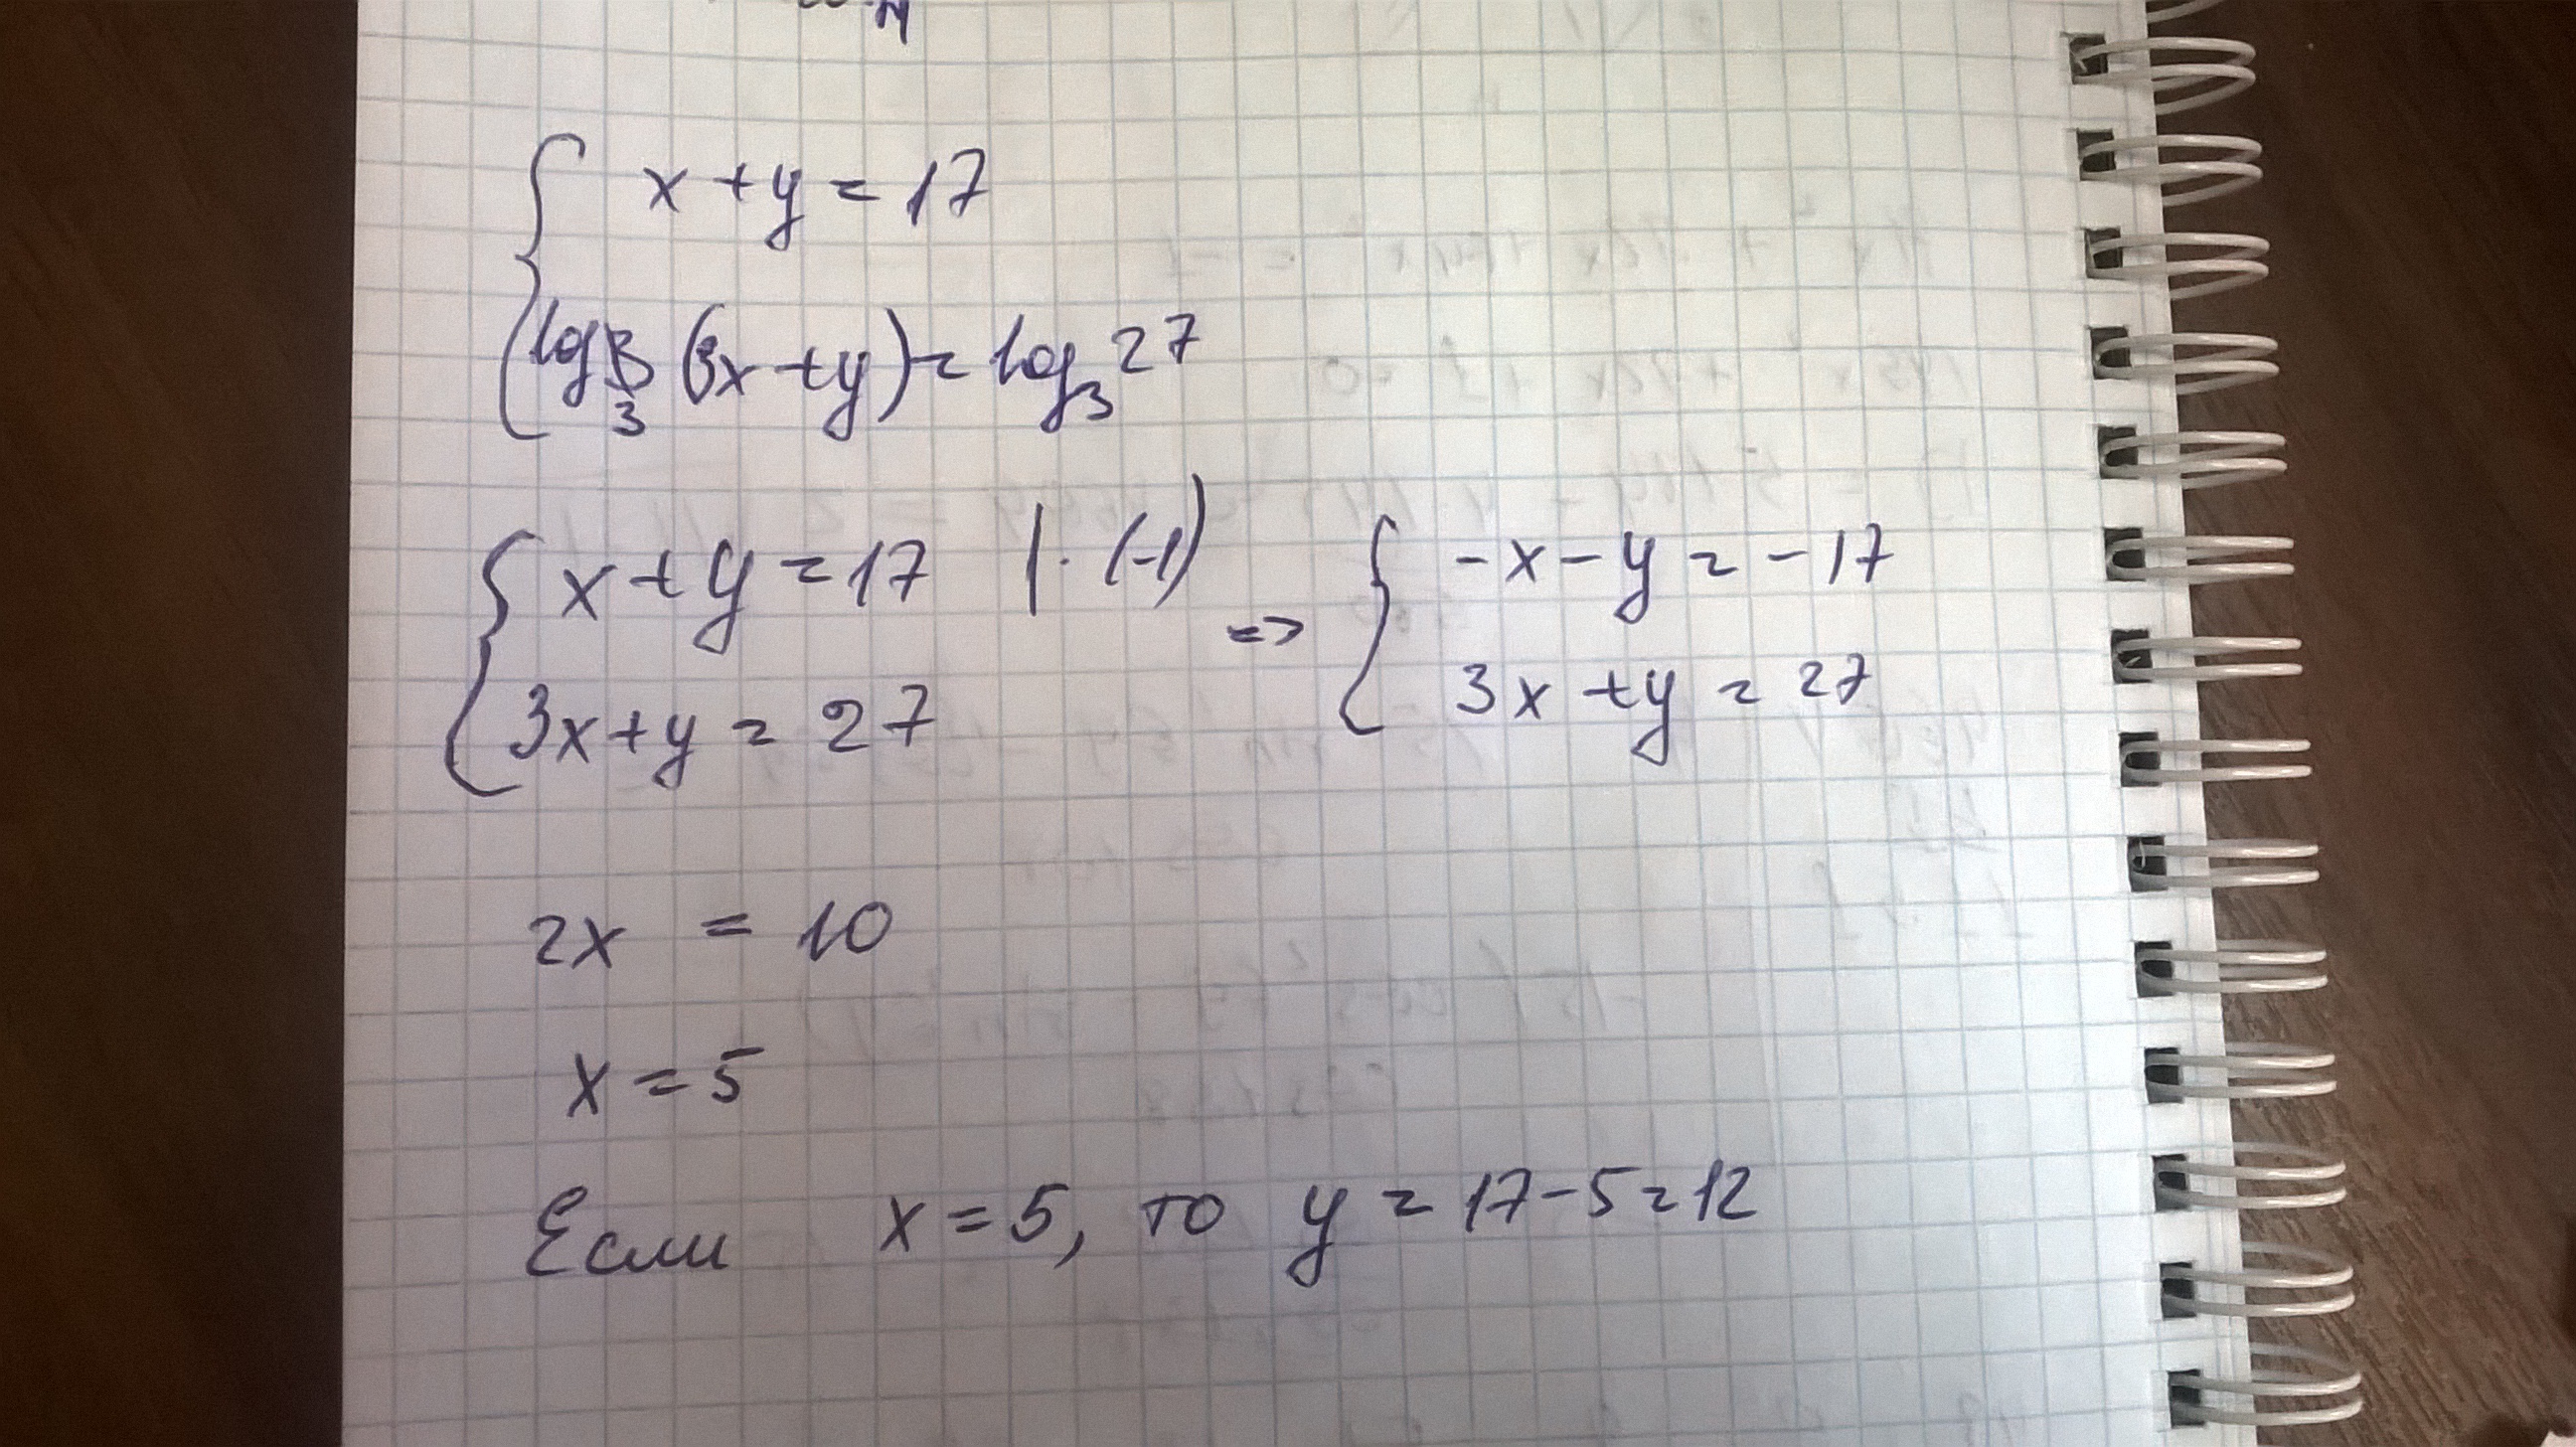 x + y = 17
log₃ (3x + y) = log₃ 27
x + y = 17 | · (-1) => -x - y = -17
3x + y = 27 3x + y = 27
2x = 10
x = 5
Если x = 5, то y = 17 - 5 = 12